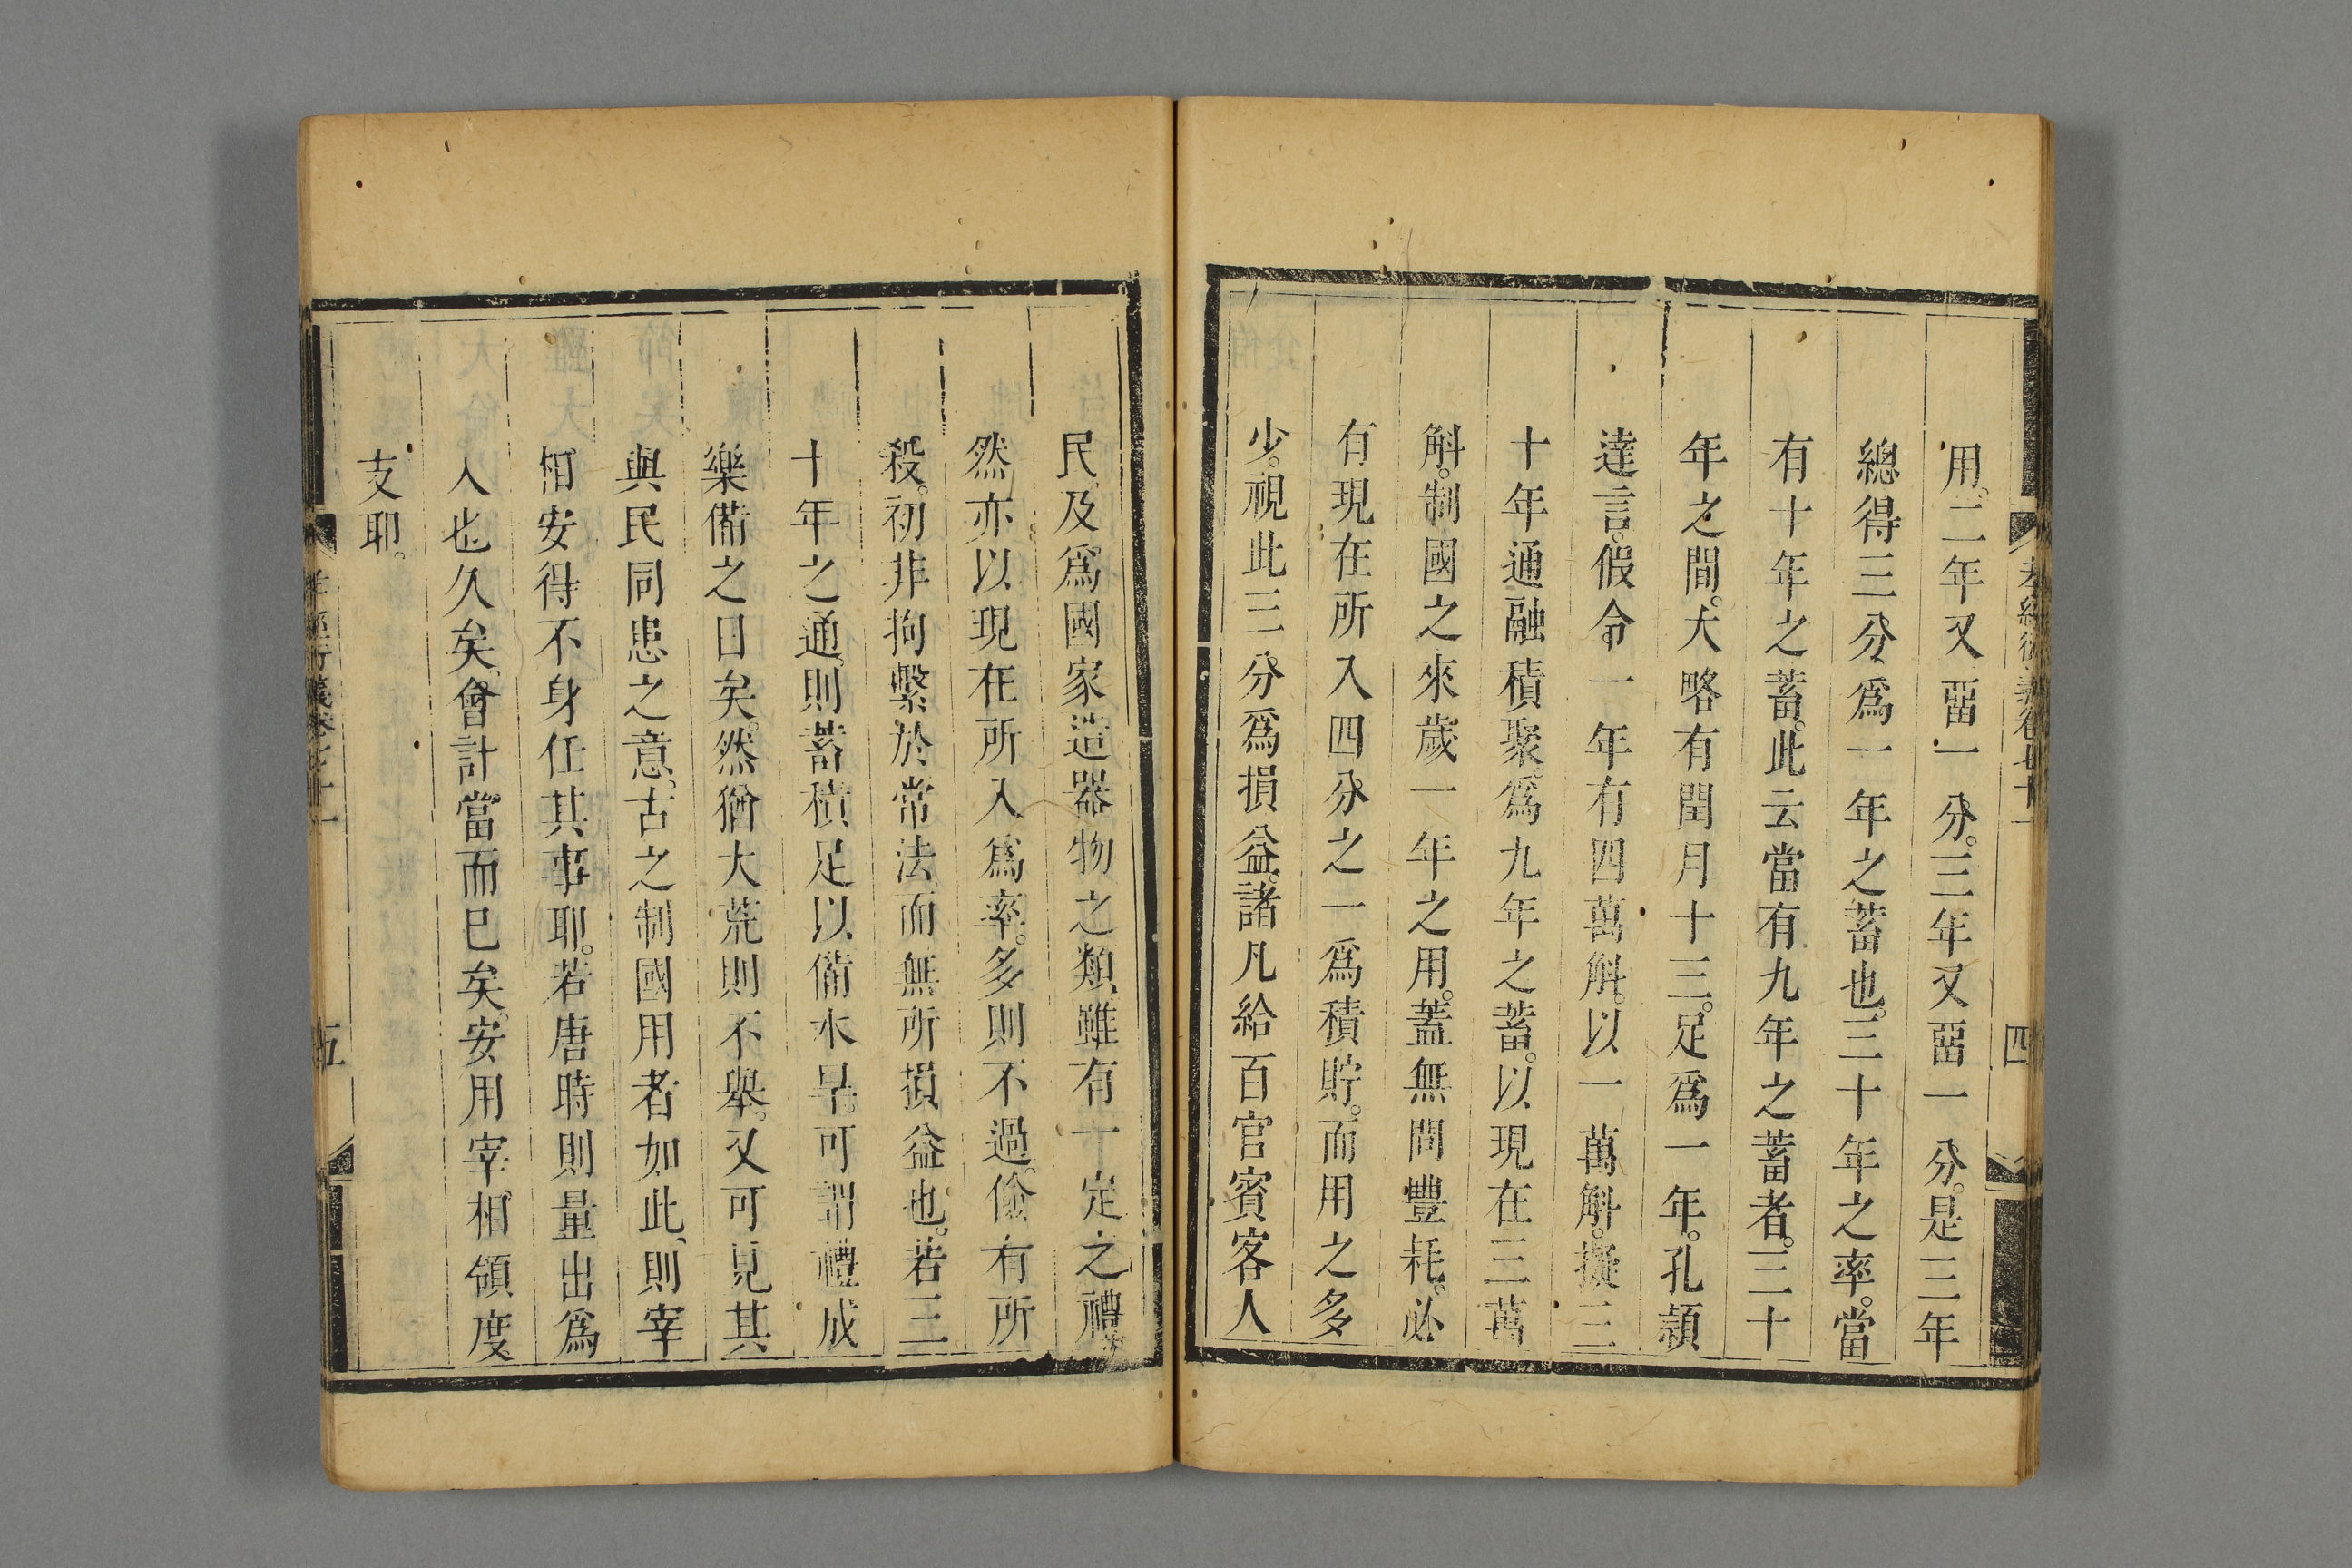 用。二年又畱一分。三年又畱一分。是三年
總得三分為一年之蓄也。三十年之率。當
有十年之蓄。此云當有九年之蓄者。三十
年之間。大略有閏月十三。足為一年。孔穎
達言。假令一年有四萬斛。以一萬斛。擬三
十年通融積聚。為九年之蓄。以現在三萬
斛。制國之來歲一年之用。蓋無問豐耗。必
有現在所入四分之一為積貯。而用之多
少。視此三分為損益。諸凡給百官賓客人
四
民。及為國家造器物之類。雖有一定之禮。
然亦以現在所入為率。多則不過。儉有所
殺。初非拘繫於常法而無所損益也。若三
十年之通。則蓄積足以備水旱。可謂禮成
樂備之日矣。然猶大荒則不舉。又可見其
與民同患之意。古之制國用者如此、則宰
相安得不身任其事耶。若唐時則量出為
入也久矣。會計當而已矣。安用宰相領度
支耶。
五